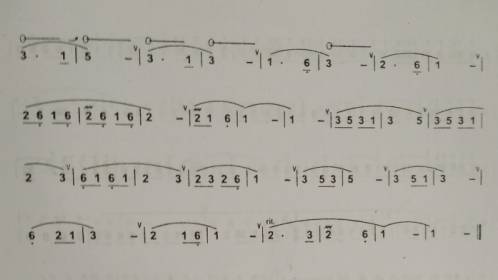 3 · 1 | 5 – ∨ | 3 · 1 | 3 – ∨ | 1 · 6̣ | 3 – ∨ | 2 · 6̣ | 1 – |
2 6̣ 1 6̣ | 2 6̣ 1 6̣ | 2 – ∨ | 2 1 6̣ | 1 – | 1 – | 3 5 3 1 | 3 5 ∨ | 3 5 3 1 |
2 3 ∨ | 6̣ 1 6̣ 1 | 2 3 ∨ | 2 3 2 6̣ | 1 – ∨ | 3 5 3 | 5 – ∨ | 3 5 1 | 3 – |
6̣ 2 1 | 3 – ∨ | 2 1 6̣ | 1 – ∨ | rit. 2 · 3 | 2 6̣ | 1 – | 1 – ‖